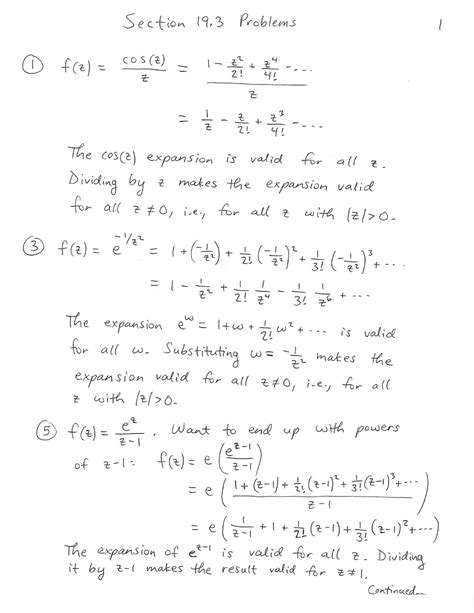 Section 19.3 Problems 1
① f(z) = cos(z)/z = (1 - z²/2! + z⁴/4! - ...)/z
= 1/z - z/2! + z³/4! - ...
The cos(z) expansion is valid for all z.
Dividing by z makes the expansion valid
for all z ≠ 0, i.e., for all z with |z|>0.
③ f(z) = e^(-1/z²) = 1 + (-1/z²) + 1/2! (-1/z²)² + 1/3! (-1/z²)³ + ...
= 1 - 1/z² + 1/2! 1/z⁴ - 1/3! 1/z⁶ + ...
The expansion e^w = 1+w+ 1/2! w² + ... is valid
for all w. Substituting w = -1/z² makes the
expansion valid for all z≠0, i.e., for all
z with |z|>0.
⑤ f(z) = e^z/(z-1) . Want to end up with powers
of z-1: f(z) = e (e^(z-1)/(z-1))
= e ((1 + (z-1) + 1/2! (z-1)² + 1/3! (z-1)³ + ...)/(z-1))
= e (1/(z-1) + 1 + 1/2! (z-1) + 1/3! (z-1)² + ...)
The expansion of e^(z-1) is valid for all z. Dividing
it by z-1 makes the result valid for z≠1.
Continued...